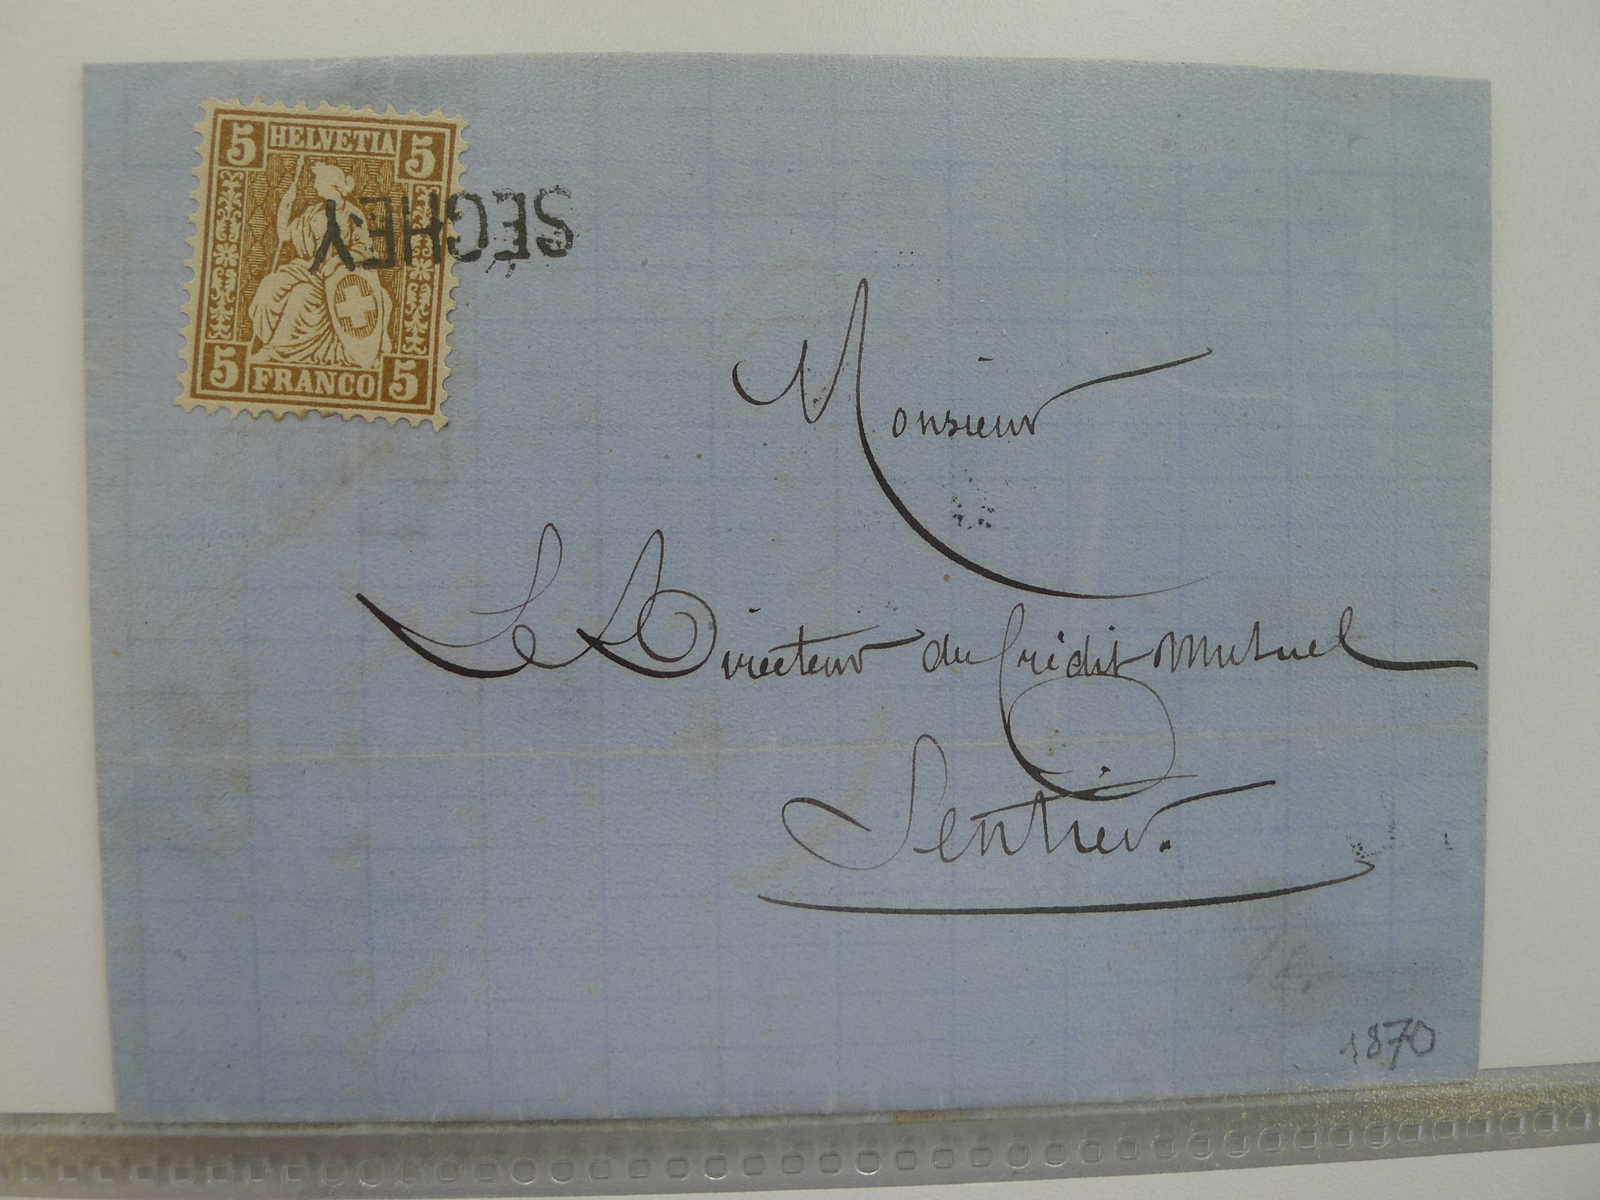 5 HELVETIA 5
SÉCHEY
5 FRANCO 5
Monsieur
Le Directeur du Crédit Mutuel
Sentier.
1870